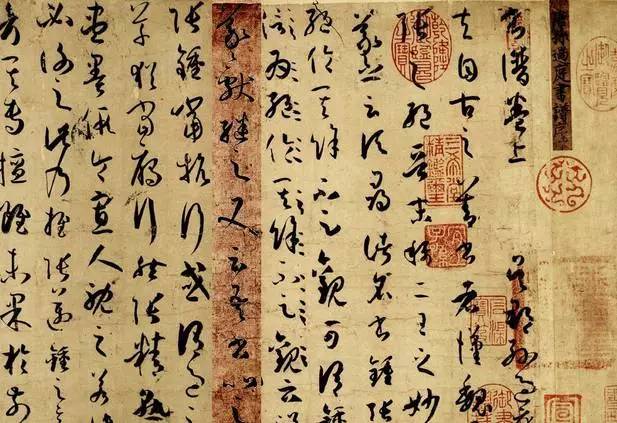 孫過庭書譜
書譜卷上 吳郡孫過庭
夫自古之善書者漢魏
張之絕晉末稱二王之妙
羲之云頃尋諸名書鍾張
絕倫其餘不足觀可謂鍾
絕倫其餘不足觀云
羲獻繼之又云吾書比之
張鍾當抗行或謂過之
草猶當雁行然張精熟
盡墨假令寡人耽之若
必謝之此乃推張邁鍾之意
考其專擅雖未果於前